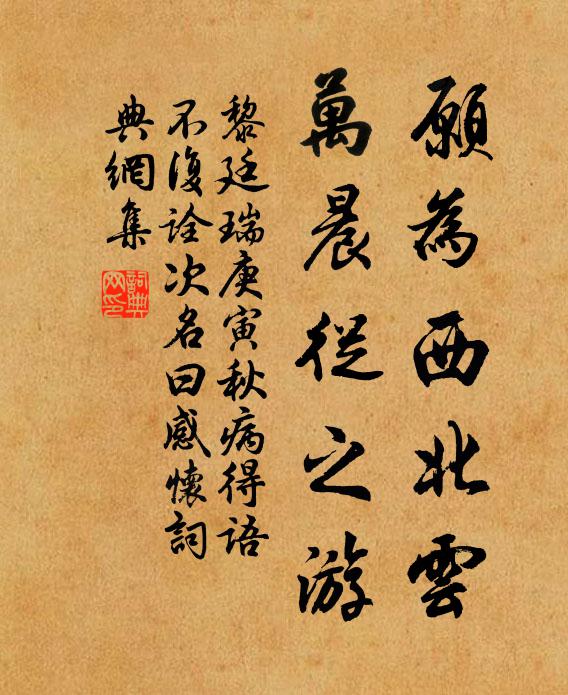 願為西北雲
萬晨從之游
黎廷瑞庚寅秋病得語
不復詮次名曰感懷詞
典網集
詞典网印